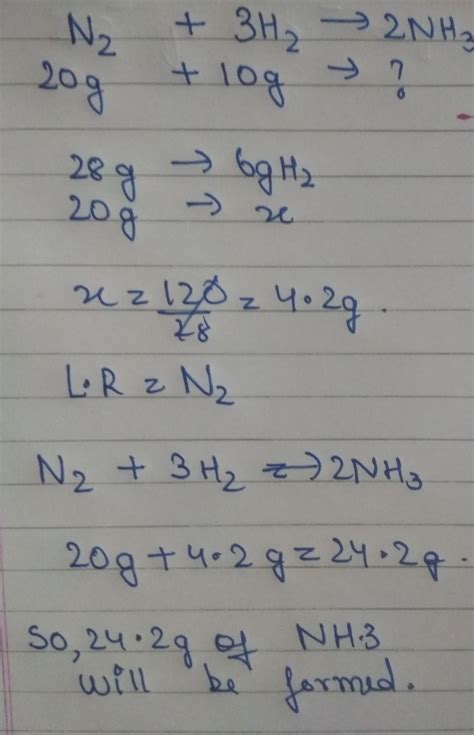 N₂ + 3H₂ → 2NH₃
20g + 10g → ?
28g → 6gH₂
20g → x
x = 120/28 = 4.2g.
L.R = N₂
N₂ + 3H₂ → 2NH₃
20g + 4.2g = 24.2g.
So, 24.2g of NH3
will be formed.